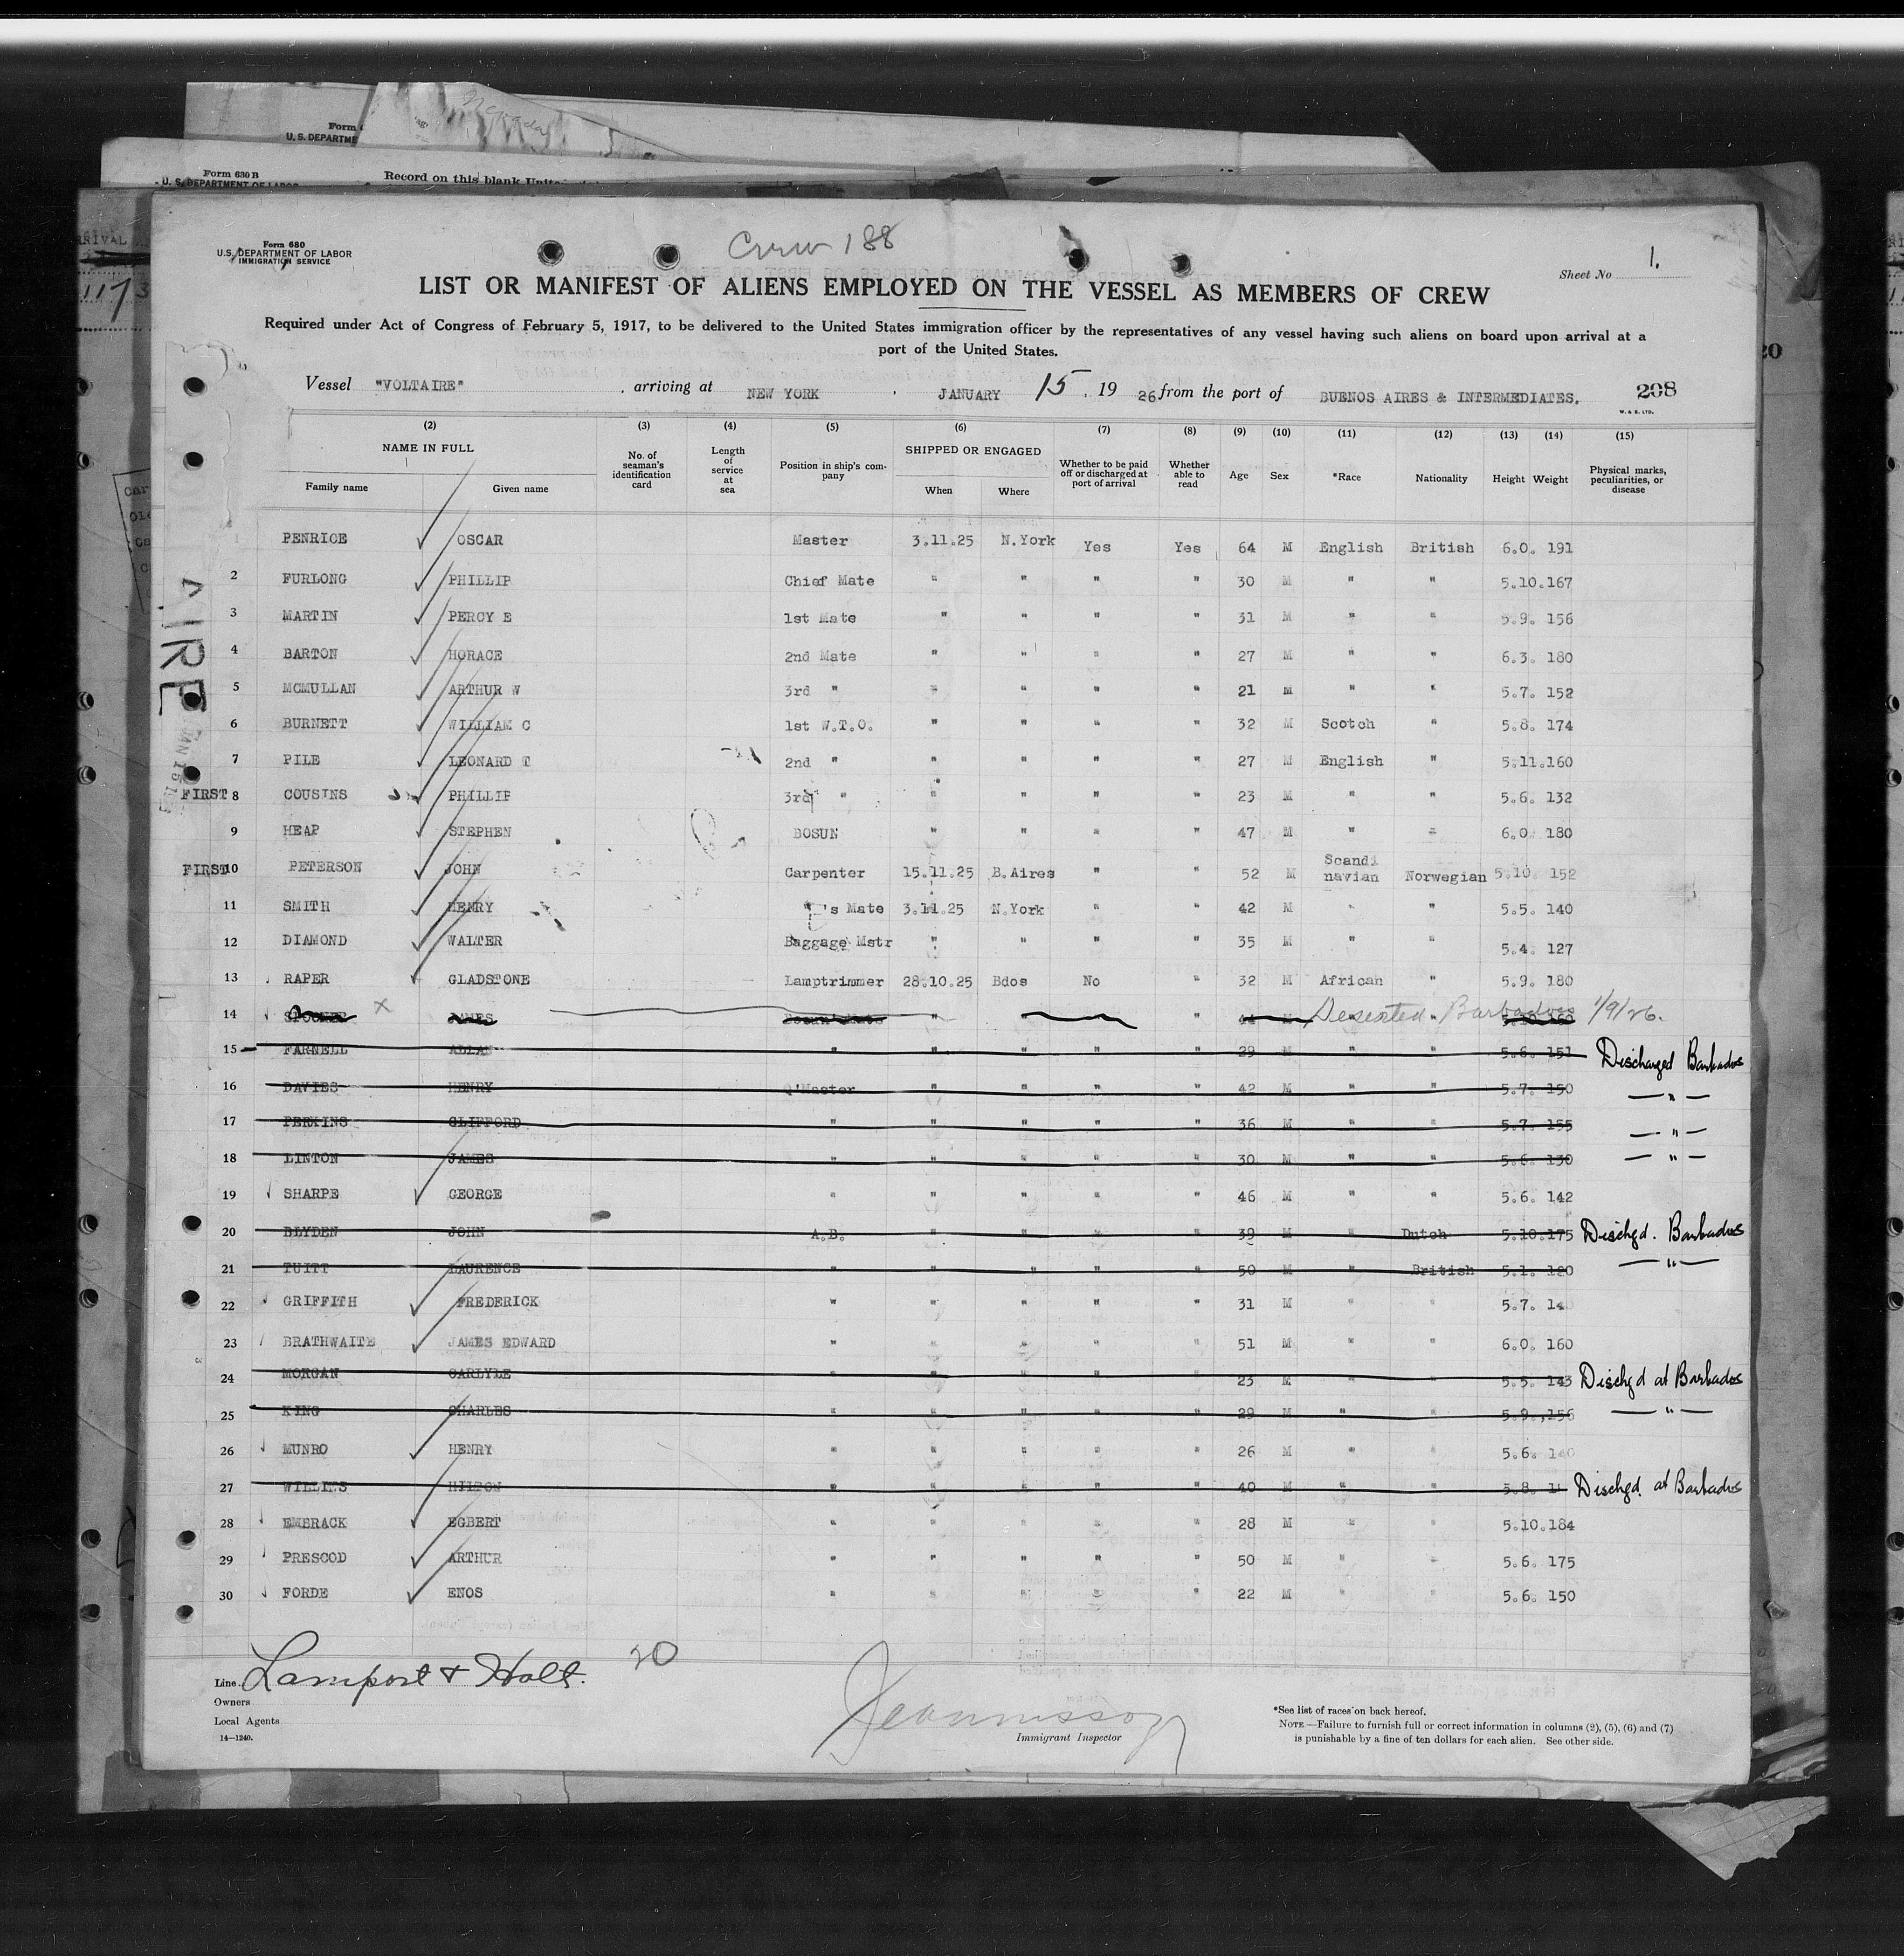 Form 630 B
U. S. DEPARTMENT OF LABOR
Record on this blank
Form 680
U.S. DEPARTMENT OF LABOR
IMMIGRATION SERVICE
Crew 188
Sheet No 1.
LIST OR MANIFEST OF ALIENS EMPLOYED ON THE VESSEL AS MEMBERS OF CREW
Required under Act of Congress of February 5, 1917, to be delivered to the United States immigration officer by the representatives of any vessel having such aliens on board upon arrival at a
port of the United States.
Vessel "VOLTAIRE" , arriving at NEW YORK , JANUARY 15 , 1926 from the port of BUENOS AIRES & INTERMEDIATES. 208
W. & S. LTD.
(2) (3) (4) (5) (6) (7) (8) (9) (10) (11) (12) (13) (14) (15)
NAME IN FULL No. of seaman's identification card Length of service at sea Position in ship's company SHIPPED OR ENGAGED Whether to be paid off or discharged at port of arrival Whether able to read Age Sex *Race Nationality Height Weight Physical marks, peculiarities, or disease
Family name Given name When Where
1 PENRICE OSCAR Master 3.11.25 N.York Yes Yes 64 M English British 6.0. 191
2 FURLONG PHILLIP Chief Mate " " " " 30 M " " 5.10.167
3 MARTIN PERCY E 1st Mate " " " " 31 M " " 5.9. 156
4 BARTON HORACE 2nd Mate " " " " 27 M " " 6.3. 180
5 MCMULLAN ARTHUR W 3rd " " " " " 21 M " " 5.7. 152
6 BURNETT WILLIAM C 1st W.T.O. " " " " 32 M Scotch " 5.8. 174
7 PILE LEONARD T 2nd " " " " " 27 M English " 5.11.160
FIRST 8 COUSINS PHILLIP 3rd " " " " " 23 M " " 5.6. 132
9 HEAP STEPHEN BOSUN " " " " 47 M " " 6.0. 180
FIRST 10 PETERSON JOHN Carpenter 15.11.25 B.Aires " " 52 M Scandinavian Norwegian 5.10. 152
11 SMITH HENRY " 's Mate 3.11.25 N.York " " 42 M " " 5.5. 140
12 DIAMOND WALTER Baggage Mstr " " " " 35 M " " 5.4. 127
13 RAPER GLADSTONE Lamptrimmer 28.10.25 Bdos No " 32 M African " 5.9. 180
14 SPOONER X JAMES Bosun's Mate " " " Deserted Barbados 1/9/26.
15 FARNELL ALLAN " " " " " 29 M " " 5.6. 151 Discharged Barbados
16 DAVIES HENRY Q'Master " " " " 42 M " " 5.7. 150 — " —
17 PERKINS CLIFFORD " " " " " 36 M " " 5.7. 155 — " —
18 LINTON JAMES " " " " " 30 M " " 5.6. 130 — " —
19 SHARPE GEORGE " " " " " 46 M " " 5.6. 142
20 BLYDEN JOHN A.B. " " " " 39 M " Dutch 5.10.175 Dischgd. Barbados
21 TUITT LAURENCE " " " " " 50 M " British 5.1. 120 — " —
22 GRIFFITH FREDERICK " " " " " 31 M " " 5.7. 14
23 BRATHWAITE JAMES EDWARD " " " " " 51 M " " 6.0. 160
24 MORGAN CARLYLE " " " " " 23 M " " 5.5. 143 Dischgd at Barbados
25 KING CHARLES " " " " " 29 M " " 5.9. 156 — " —
26 MUNRO HENRY " " " " " 26 M " " 5.6. 140
27 HILTON " " " " " 40 M " " 5.8. Dischgd. at Barbados
28 EMBRACK EGBERT " " " " " 28 M " " 5.10.184
29 PRESCOD ARTHUR " " " " " 50 M " " 5.6. 175
30 FORDE ENOS " " " " " 22 M " " 5.6. 150
20
Line Lamport & Holt.
Owners
Local Agents
14—1240.
Immigrant Inspector
*See list of races on back hereof.
NOTE.—Failure to furnish full or correct information in columns (2), (5), (6) and (7)
is punishable by a fine of ten dollars for each alien. See other side.